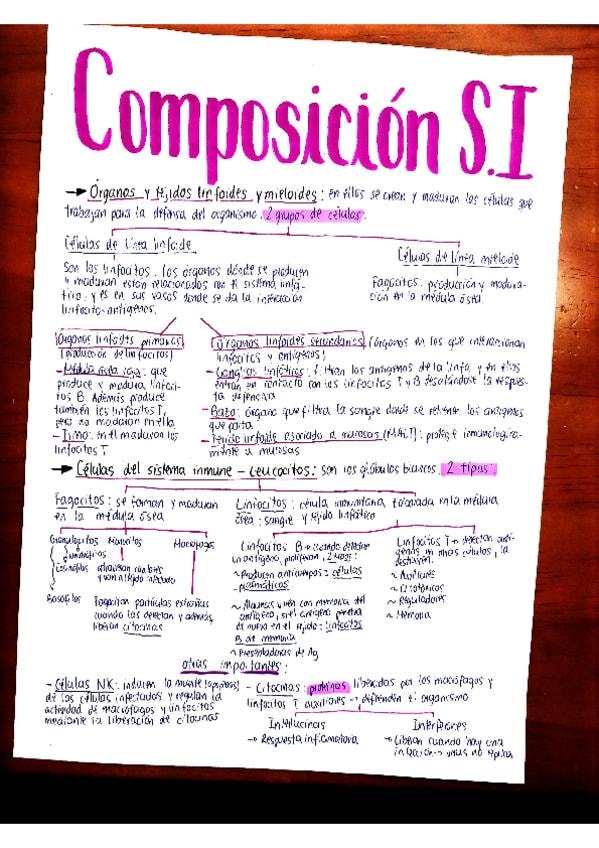 Composición S.I
→ Órganos y tejidos linfoides y mieloides: en ellos se crean y maduran las células que
trabajan para la defensa del organismo. 2 grupos de células.
Células de línea linfoide
Células de línea mieloide
Son los linfocitos. Los órganos dónde se producen
y maduran están relacionados con el sistema linfá-
tico, y es en sus vasos donde se da la interacción
linfocito-antígeno.
Fagocitos: producción y madura-
ción en la médula ósea.
Órganos linfoides primarios
(producción de linfocitos)
- Médula ósea roja: que
produce y madura linfoci-
tos B. Además produce
también los linfocitos T,
pero no maduran en ella
- Timo: En él maduran los
linfocitos T.
Órganos linfoides secundarios (órganos en los que interaccionan
linfocitos y antígenos)
- Ganglios linfáticos: filtran los antígenos de la linfa y en ellos
entran en contacto con los linfocitos T y B desatándose la respues-
ta defensiva
- Bazo: órgano que filtra la sangre donde se retienen los antígenos
que porta
- Tejido linfoide asociado a mucosas (MALT): protege inmunológica-
mente a mucosas
→ Células del sistema inmune - Leucocitos: son los glóbulos blancos. 2 tipos:
Fagocitos: se forman y maduran
en la médula ósea
Linfocitos: célula inmunitaria fabricada en la médula
ósea; sangre y tejido linfático
Granulocitos
Monocitos
Macrófagos
Neutrófilos
Eosinófilos
Basófilos
y van al tejido infectado
Fagocitan partículas extrañas
cuando las detectan y además
liberan citocinas
Linfocitos B → cuando detectan
un antígeno, proliferan, 2 tipos:
~ Producen anticuerpos: células
plasmáticas
~ Algunas quedan con memoria del
antígeno, si el antígeno penetra
de nuevo en el tejido: linfocitos
B de memoria
~ Presentadoras de Ag
Linfocitos T → detectan antí-
genos en otras células, la
destruyen.
~ Auxiliares
~ Citotóxicos
~ Reguladores
~ Memoria
otras importantes:
- Células NK: inducen la muerte (apoptosis)
de las células infectadas y regulan la
actividad de macrófagos y linfocitos
mediante la liberación de citocinas
- Citocinas: proteínas liberadas por los macrófagos y
linfocitos T auxiliares → defienden el organismo
Interleucinas
→ Respuesta inflamatoria
Interferones
→ Liberan cuando hay una
infección → virus no replica